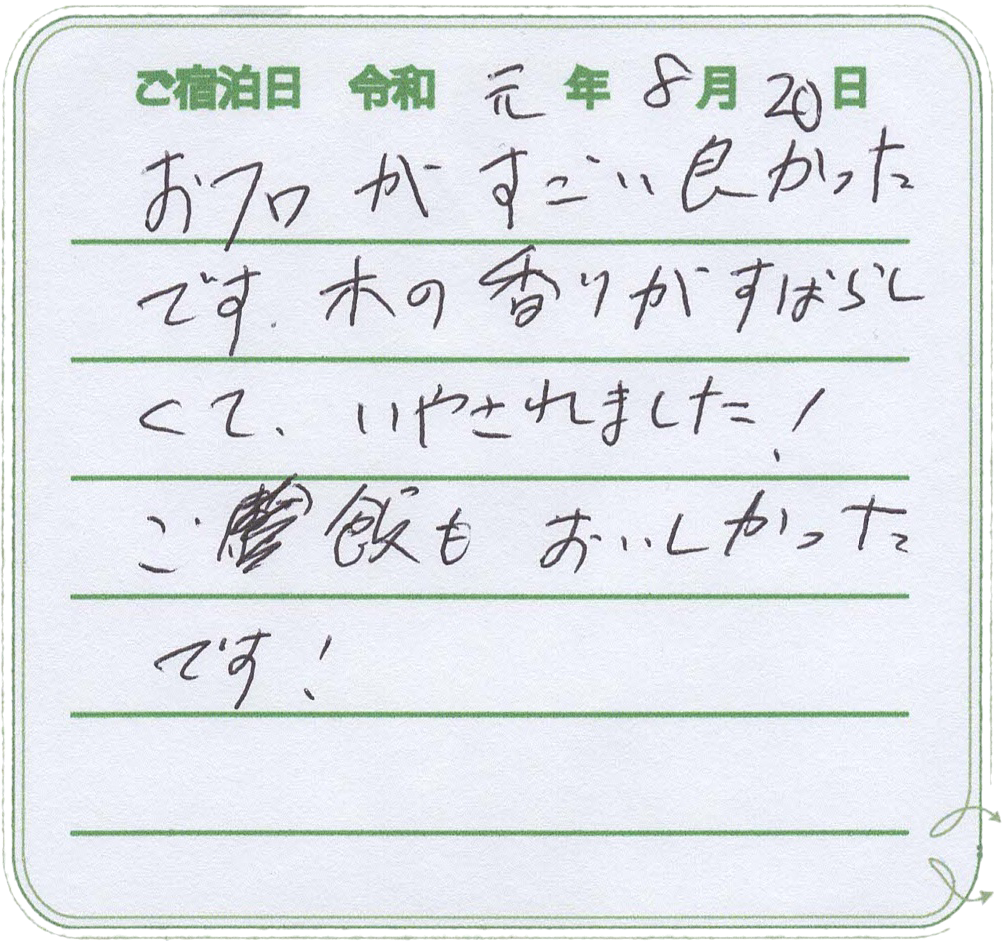 ご宿泊日 令和 元 年 8 月 20 日
おフロ が すごい 良かった
です. 木の 香りが すばらし
くて、いやされました!
ご 飯も おいしかった
です!